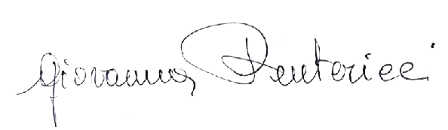 Giovanna Pentericci